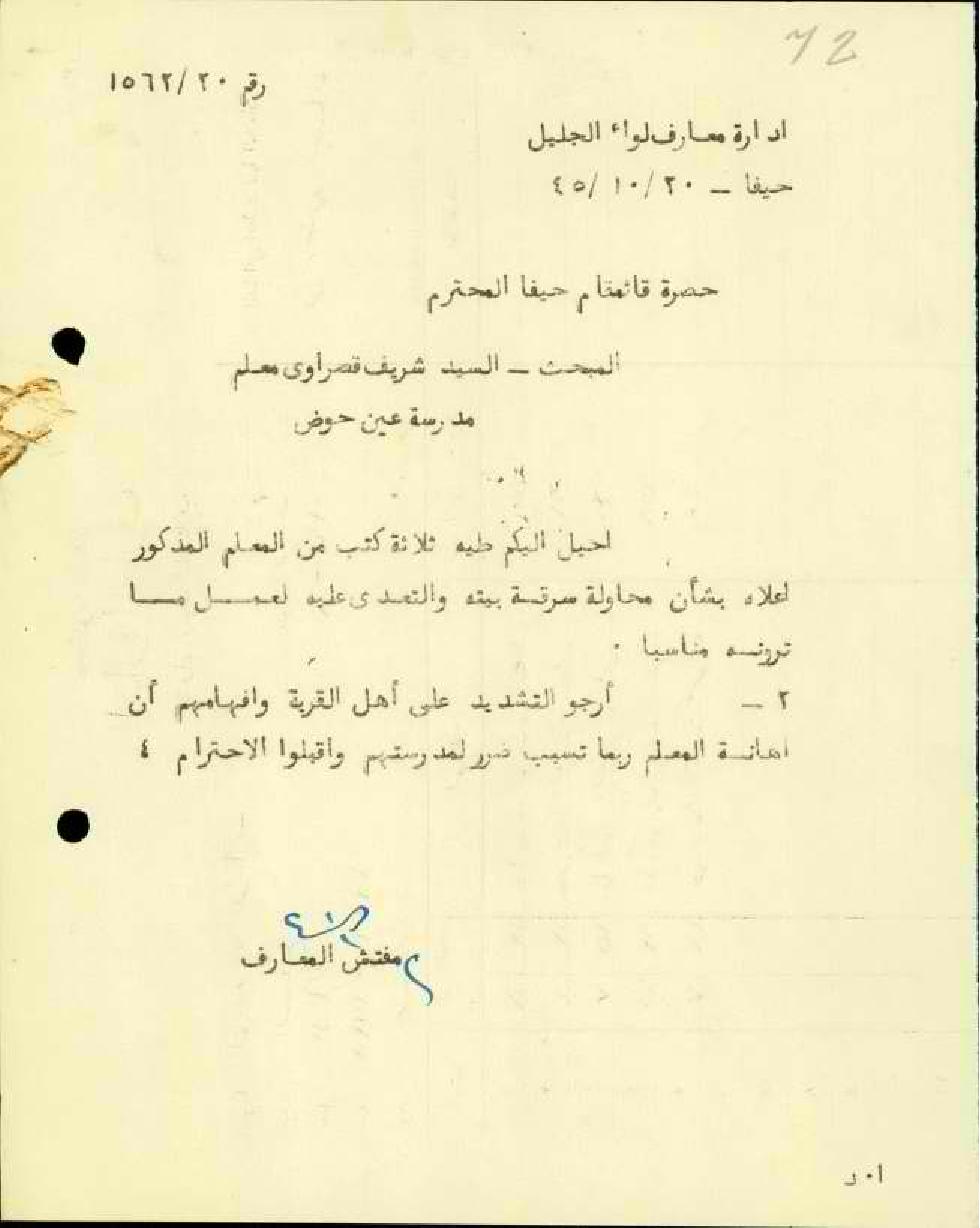 72
رقم ١٥٦٢/٢٠
ادارة معارف لواء الجليل
حيفا – ٢٠/١٠/٤٥
حضرة قائمقام حيفا المحترم
المبحث – السيد شريف قصراوى معلم
مدرسة عين حوض
احيل اليكم طيه ثلاثة كتب من المعلم المذكور
اعلاه بشأن محاولة سرقة بيته والتعدى عليه لعمل ما
ترونه مناسبا ٠
٢ – أرجو التشديد على أهل القرية وافهامهم أن
اهانة المعلم ربما تسبب ضرر لمدرستهم واقبلوا الاحترام ٤
مفتش المعارف
ا٠ر